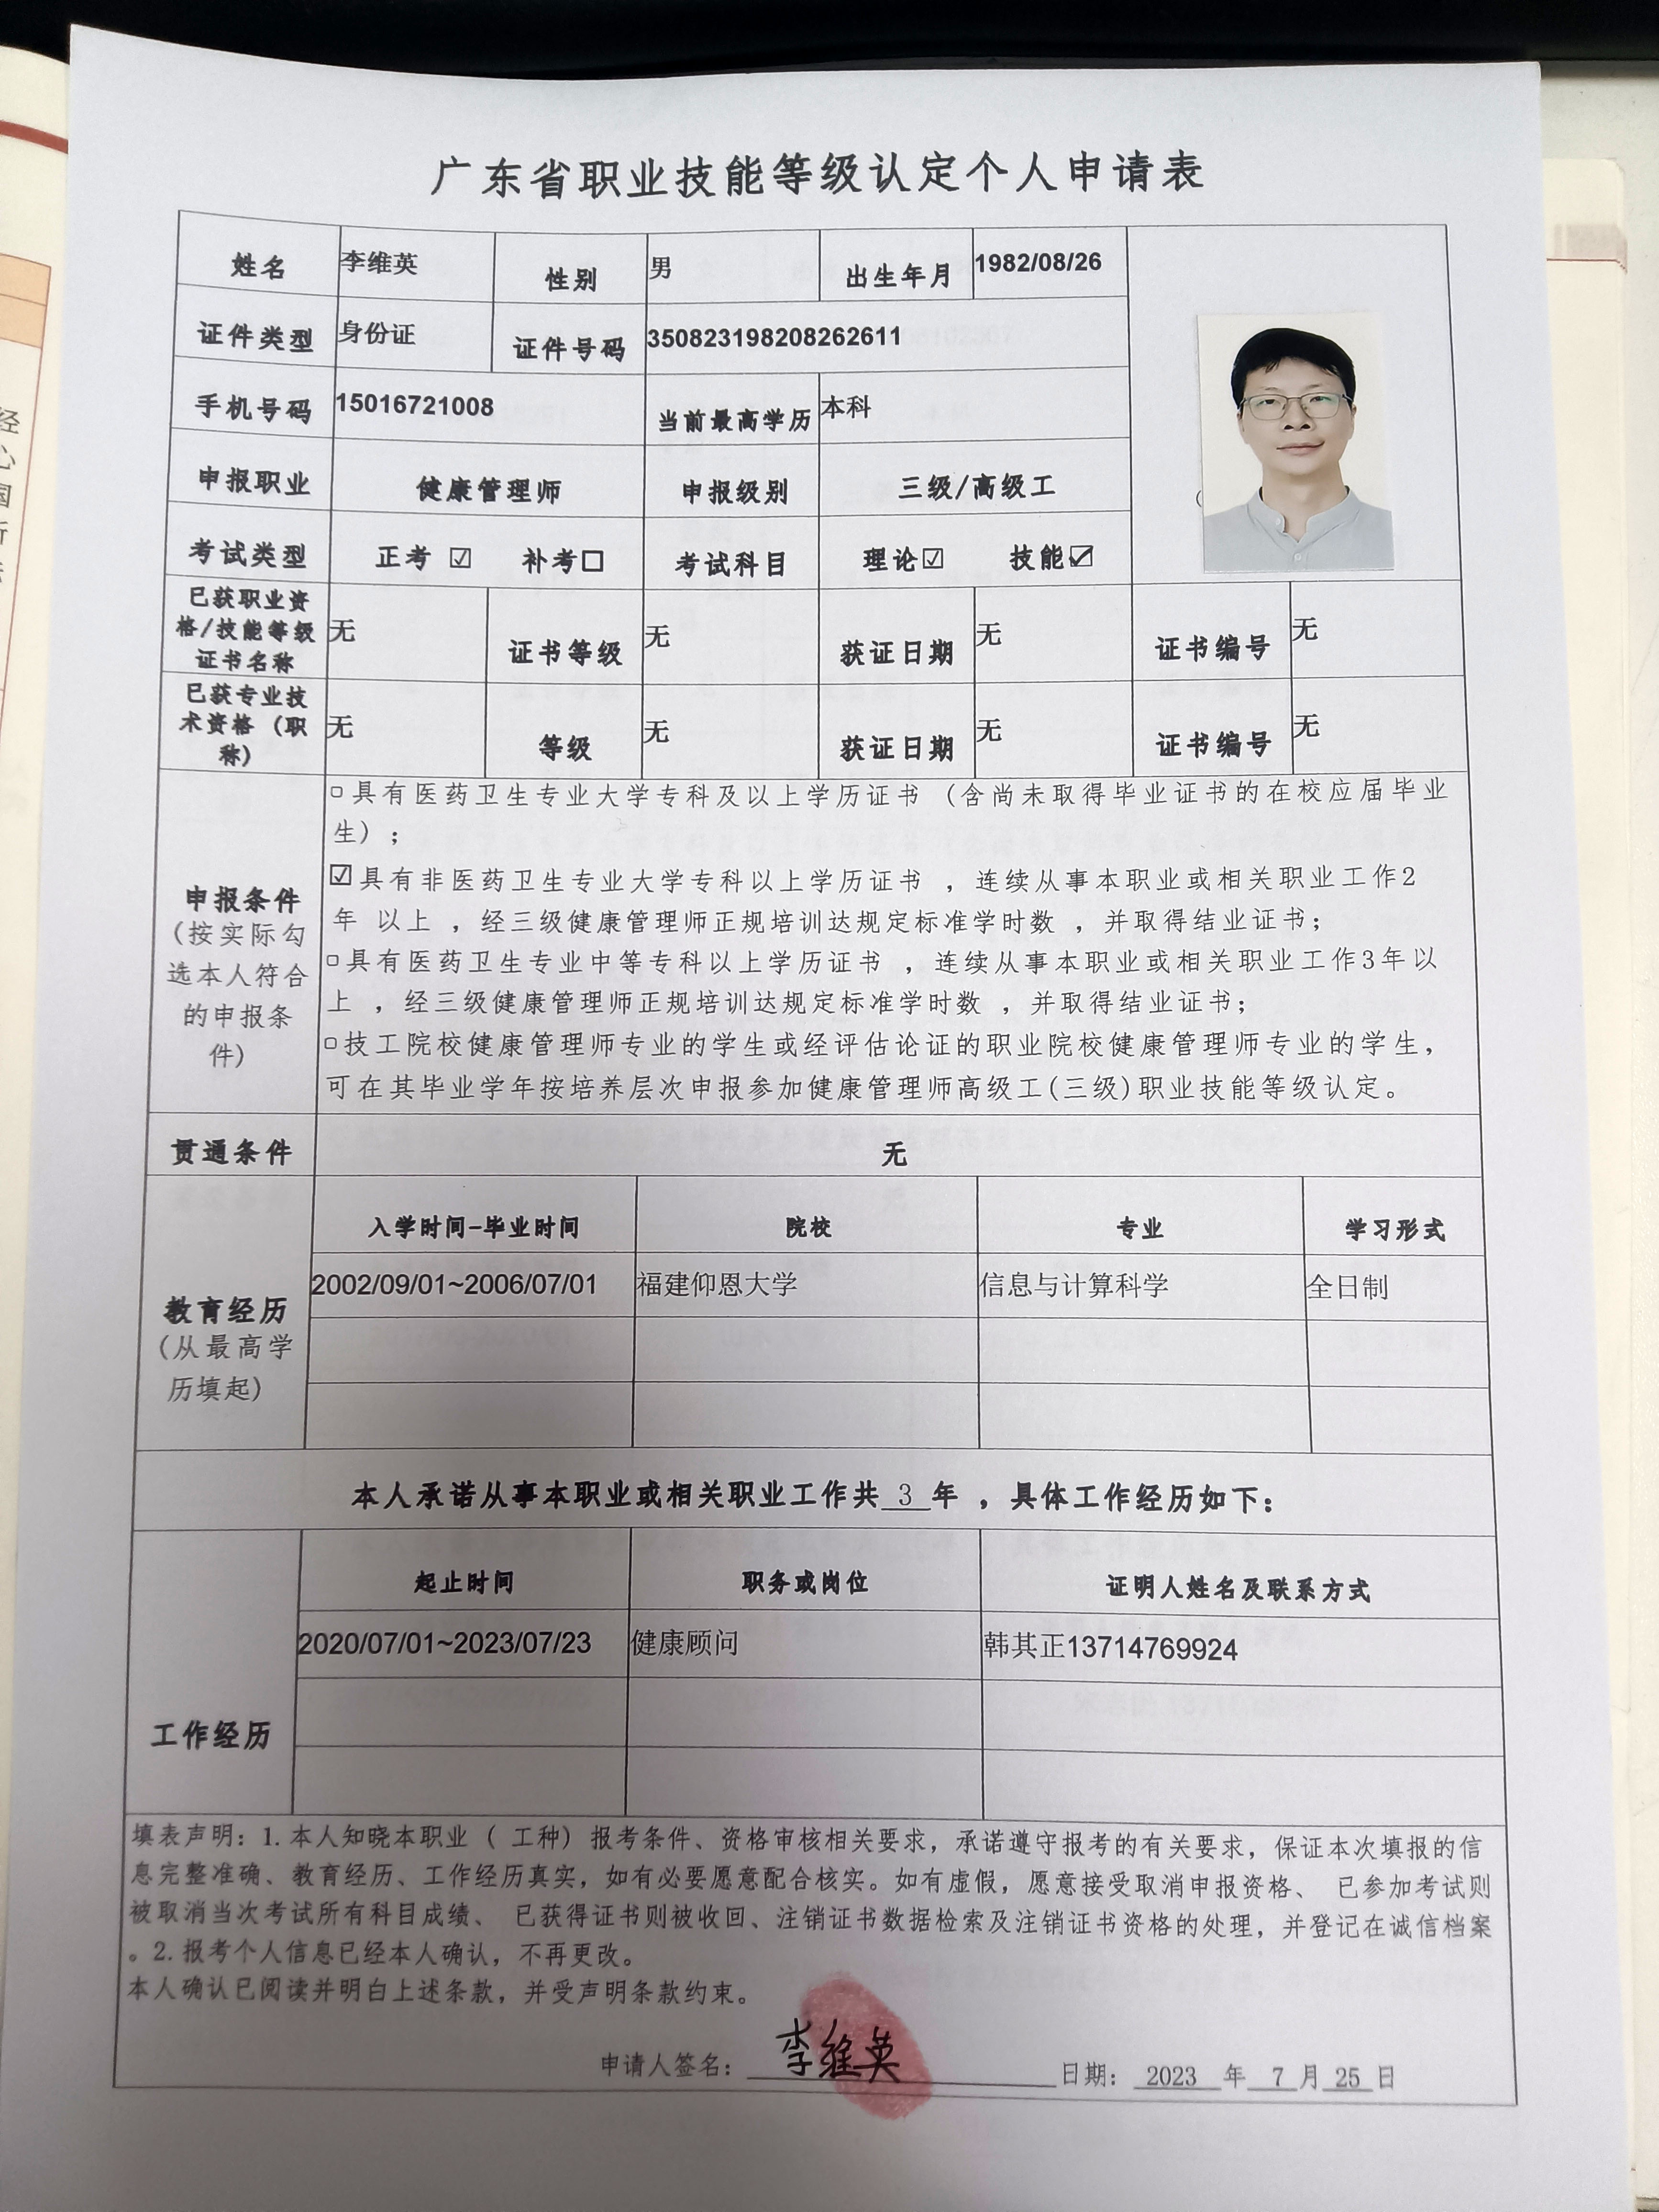 广东省职业技能等级认定个人申请表
姓名 李维英 性别 男 出生年月 1982/08/26
证件类型 身份证 证件号码 350823198208262611
手机号码 15016721008 当前最高学历 本科
申报职业 健康管理师 申报级别 三级/高级工
考试类型 正考 ☑ 补考□ 考试科目 理论☑ 技能☑
已获职业资
格/技能等级
证书名称 无 证书等级 无 获证日期 无 证书编号 无
已获专业技
术资格 (职
称) 无 等级 无 获证日期 无 证书编号 无
申报条件
(按实际勾
选本人符合
的申报条
件)
□具有医药卫生专业大学专科及以上学历证书 (含尚未取得毕业证书的在校应届毕业
生) ;
☑具有非医药卫生专业大学专科以上学历证书 , 连续从事本职业或相关职业工作2
年 以上 , 经三级健康管理师正规培训达规定标准学时数 , 并取得结业证书;
□具有医药卫生专业中等专科以上学历证书 , 连续从事本职业或相关职业工作3年以
上 , 经三级健康管理师正规培训达规定标准学时数 , 并取得结业证书;
□技工院校健康管理师专业的学生或经评估论证的职业院校健康管理师专业的学生,
可在其毕业学年按培养层次申报参加健康管理师高级工(三级)职业技能等级认定。
贯通条件 无
教育经历
(从最高学
历填起)
入学时间-毕业时间 院校 专业 学习形式
2002/09/01~2006/07/01 福建仰恩大学 信息与计算科学 全日制
本人承诺从事本职业或相关职业工作共 3 年 , 具体工作经历如下:
工作经历
起止时间 职务或岗位 证明人姓名及联系方式
2020/07/01~2023/07/23 健康顾问 韩其正13714769924
填表声明: 1. 本人知晓本职业 ( 工种) 报考条件、资格审核相关要求, 承诺遵守报考的有关要求, 保证本次填报的信
息完整准确、教育经历、工作经历真实, 如有必要愿意配合核实。如有虚假, 愿意接受取消申报资格、 已参加考试则
被取消当次考试所有科目成绩、 已获得证书则被收回、注销证书数据检索及注销证书资格的处理, 并登记在诚信档案
。2. 报考个人信息已经本人确认, 不再更改。
本人确认已阅读并明白上述条款, 并受声明条款约束。
申请人签名: 李维英 日期: 2023 年 7 月 25 日